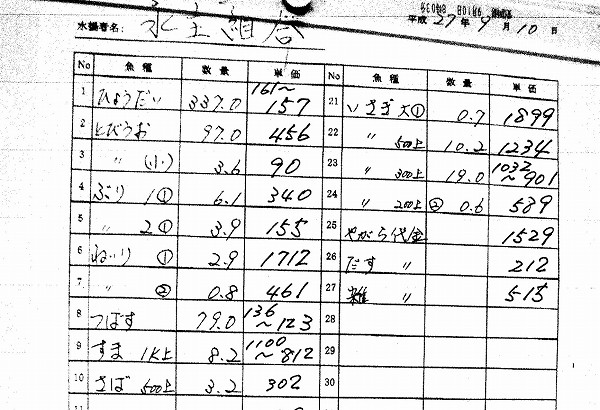 平成27年9月10日
水揚者名: 水主組合
No 魚種 数量 単価
1 ひょうだい 337.0 161〜157
2 とびうお 97.0 456
3 〃 (小) 3.6 90
4 ぶり 1① 6.1 340
5 〃 2① 3.9 155
6 ねいり ① 2.9 1712
7 〃 ② 0.8 461
8 つばす 79.0 136〜123
9 すま 1K上 8.2 1100〜812
10 さば 500上 3.2 302
11
No 魚種 数量 単価
21 いさぎ大① 0.7 1899
22 〃 500上 10.2 1234
23 〃 300上 19.0 1032〜901
24 〃 200上 ② 0.6 589
25 やがら代金 1529
26 だす 〃 212
27 雑 〃 515
28
29
30